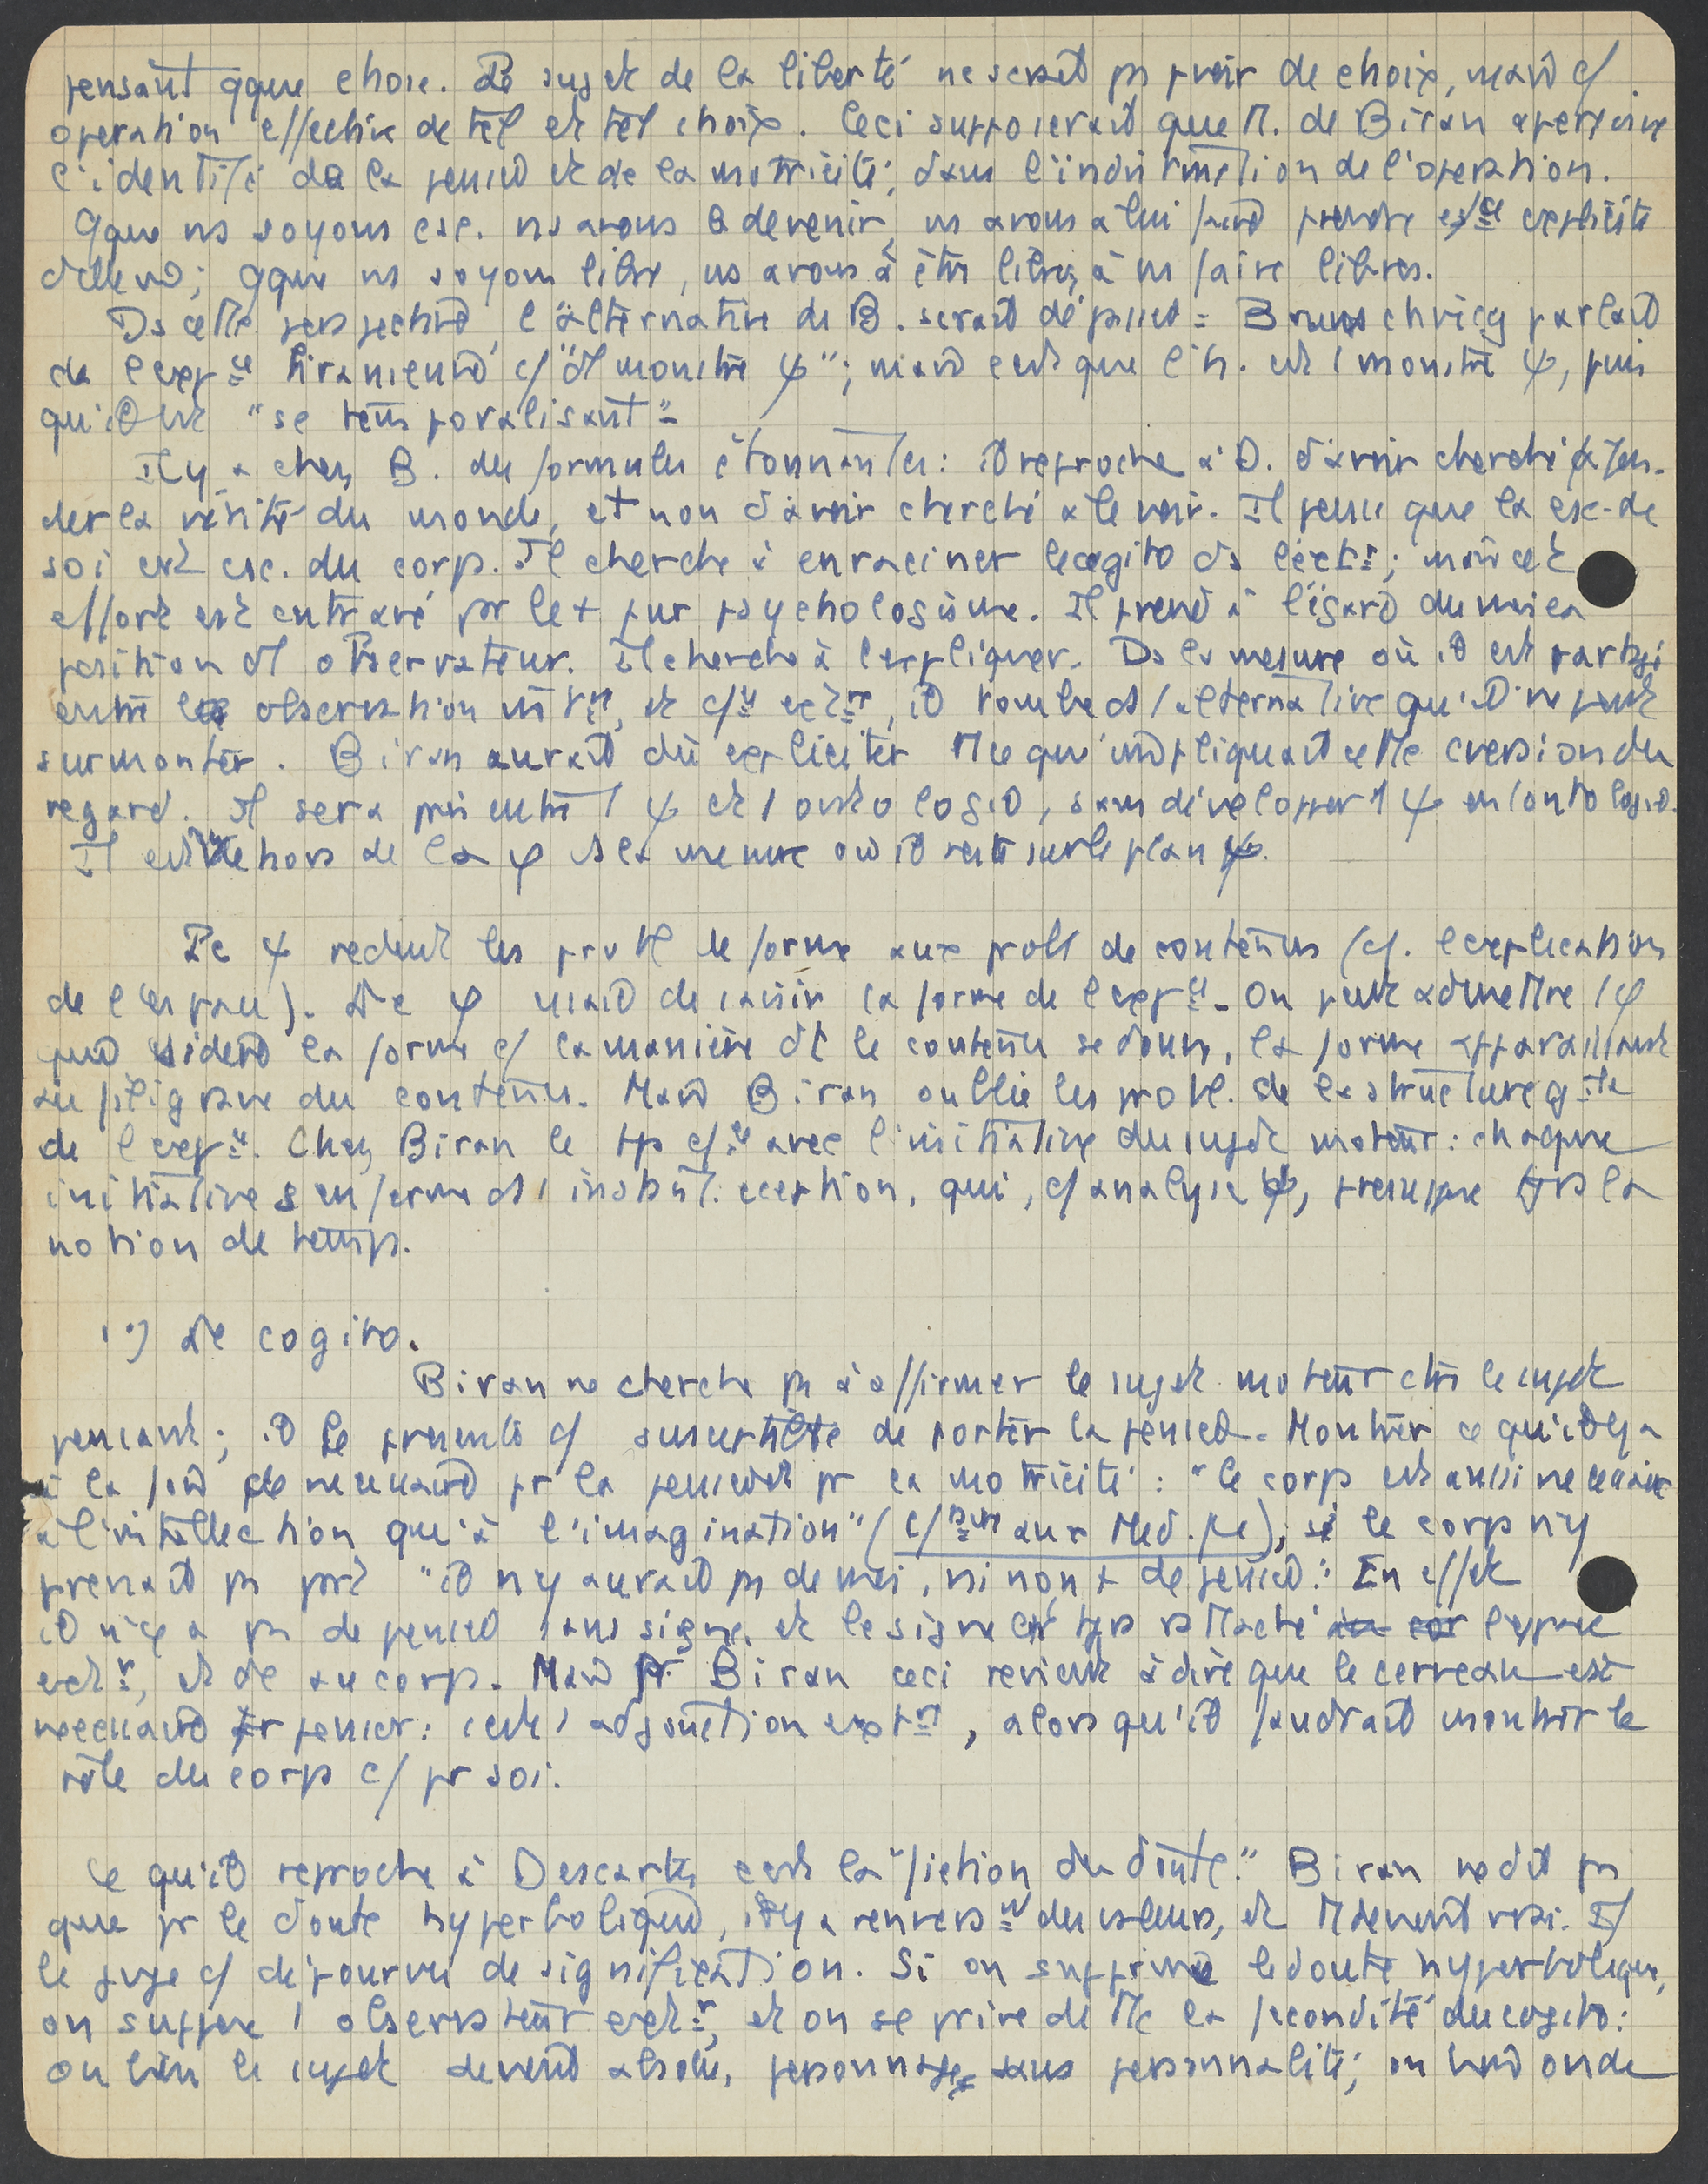 pensant qque chose. Le sujet de la liberté ne serait ps pvoir de choix, mais c/
opération effective de tel et tel choix. Ceci supposerait que M. de Biran aperçoive
l'identité de la pensée et de la motricité, dans l'indistinction de l'opération.
Qque ns soyons csc. ns avons à devenir, ns avons à lui faire prendre explicite
d'elle ; qque ns soyons libre, ns avons à être libres, à ns faire libres.
Ds cette perspective, l'alternative de B. serait dépassée = Brunschvicg parlait
de l'exp ce biranienne c/ d'1 monstre ψ" ; mais c'est que l'h. est 1 monstre ψ, puis
qu'il est "se temporalisant" =
Il y a chez B. des formules étonnantes : il reproche à D. d'avoir cherché à fon-
der la vérité du monde, et non d'avoir cherché à le voir. Il pense que la csc. de
soi est csc. du corps. Il cherche à enraciner le cogito ds l'ext r ; mais cet
effort est entravé par le + pur psychologisme. Il prend à l'égard du moi la
position d'1 observateur. Il cherche à l'expliquer. Ds la mesure où il est partagé
entre observation int re, et ext re, il tombe ds 1 alternative qu'il ne peut
surmonter. Biran aurait dû expliciter tt ce qu'impliquait cette cversion du
regard. Il sera pris entre 1 ψ et 1 ontologie, sans développer 1 ψ en 1 ontologie.
Il est dehors de la φ ds la mesure où il reste sur le plan ψ.

Le ψ réduit les probl de forme aux probl de contenus (cf. l'explication
de l'espace). Le φ essaie de saisir la forme de l'exp ce. On peut admettre 1 φ
qui sidère la forme c/ la manière dt le contenu se donne, la forme apparaissant
au filigrane du contenu. Mais Biran oublie les probl. de la structure
de l'exp ce. Chez Biran le tps avec l'initiative du sujet moteur : chaque
initiative s'enferme ds 1 instant. exception, qui, c/ analyse ψ, présuppose tjrs la
notion de temps.

1°) Le cogito.
Biran ne cherche ps à affirmer le sujet moteur ctre le sujet
pensant ; il le présente c/ susceptible de porter la pensée. Montrer ce qu'il y a
à la fois de nécessaire pr la pensée et pr la motricité : "le corps est aussi nécessaire
à l'intellection qu'à l'imagination" ( aux Méd. ), si le corps n'y
prenait ps part "il n'y aurait ps de moi, ni non + de pensée." En effet
il n'y a ps de pensée sans signe, et le signe est tjrs rattaché l'espace
ext r, et dc au corps. Mais pr Biran ceci revient à dire que le cerveau est
nécessaire pr penser : c'est 1 adjonction ext re, alors qu'il faudrait montrer le
rôle du corps c/ pr soi.

Ce qu'il reproche à Descartes c'est la "fiction du doute." Biran ne dit ps
que pr le doute hyperbolique, il y a renvers nt des valeurs, et tt devient vrai. Il
le juge c/ dépourvu de signification. Si on supprime le doute hyperbolique,
on suppose 1 observateur ext r, et on se prive de tte la fécondité du cogito :
ou bien le sujet devient absolu, personnage sans personnalité ; ou bien on de